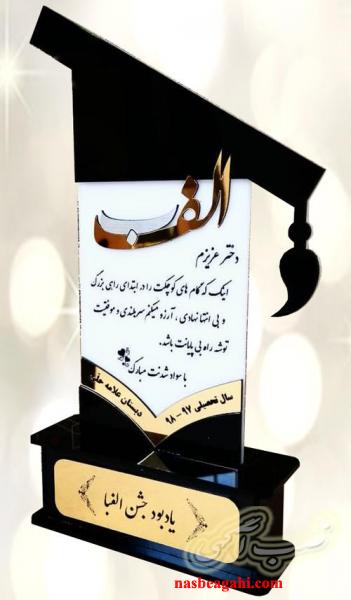 الفب
دختر عزیزم
اینک که گام های کوچکت را در ابتدای راهی بزرگ
و بی انتها نهادی ، آرزو میکنم سربلندی و موفقیت
توشه راه بی پایانت باشد.
با سواد شدنت مبارک
سال تحصیلی ۹۷ - ۹۸
دبستان علامه حلی
یادبود جشن الفبا
نصب آگهی
nasbeagahi.com